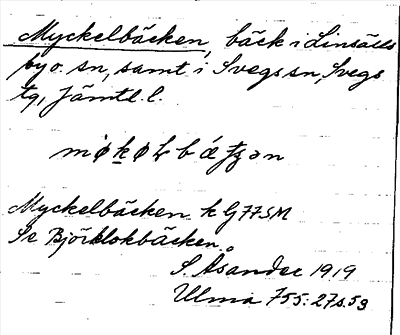 Myckelbäcken, bäck i Linsälls
by o. sn, samt i Svegs sn, Svegs
tg, Jämtl. l.
Myckelbäcken k G 77 SM
Se Björklokbäcken.
S. Åsander 1919
Ulma 755: 27 s. 53